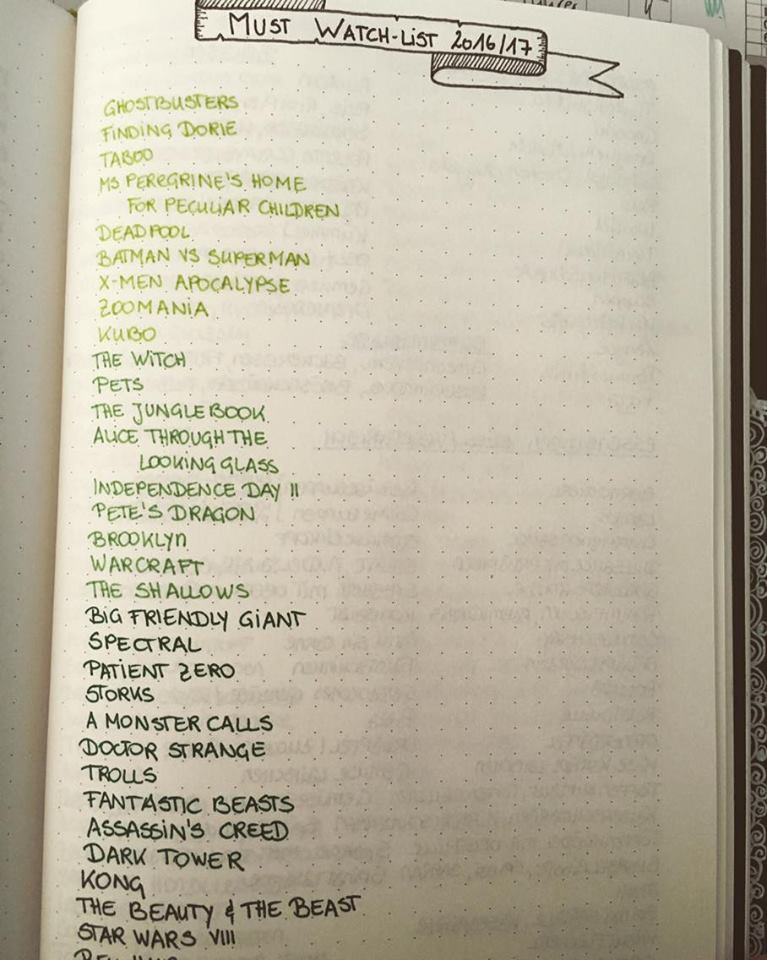 MUST WATCH-LIST 2016/17
GHOSTBUSTERS
FINDING DORIE
TABOO
MS PEREGRINE'S HOME
FOR PECULIAR CHILDREN
DEADPOOL
BATMAN VS SUPERMAN
X-MEN APOCALYPSE
ZOOMANIA
KUBO
THE WITCH
PETS
THE JUNGLE BOOK
ALICE THROUGH THE
LOOKING GLASS
INDEPENDENCE DAY II
PETE'S DRAGON
BROOKLYN
WARCRAFT
THE SHALLOWS
BIG FRIENDLY GIANT
SPECTRAL
PATIENT ZERO
STORKS
A MONSTER CALLS
DOCTOR STRANGE
TROLLS
FANTASTIC BEASTS
ASSASSIN'S CREED
DARK TOWER
KONG
THE BEAUTY & THE BEAST
STAR WARS VIII